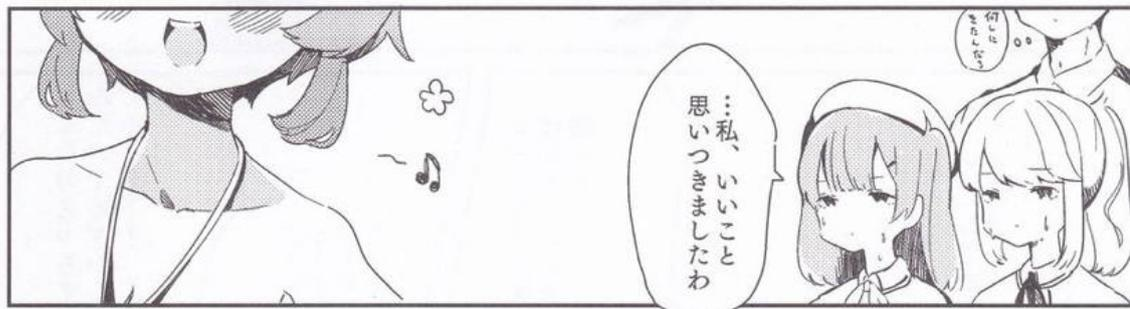 何しに
きたんだろ
…私、いいこと
思いつきましたわ